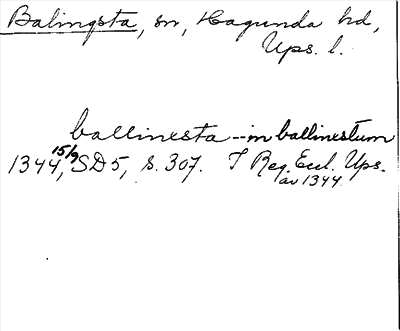 Balingsta, sn, Hagunda hd,
Ups. l.
ballinesta – in ballinestum
1344 15/9, SD 5, s. 307. I Reg. Eccl. Ups.
av 1344